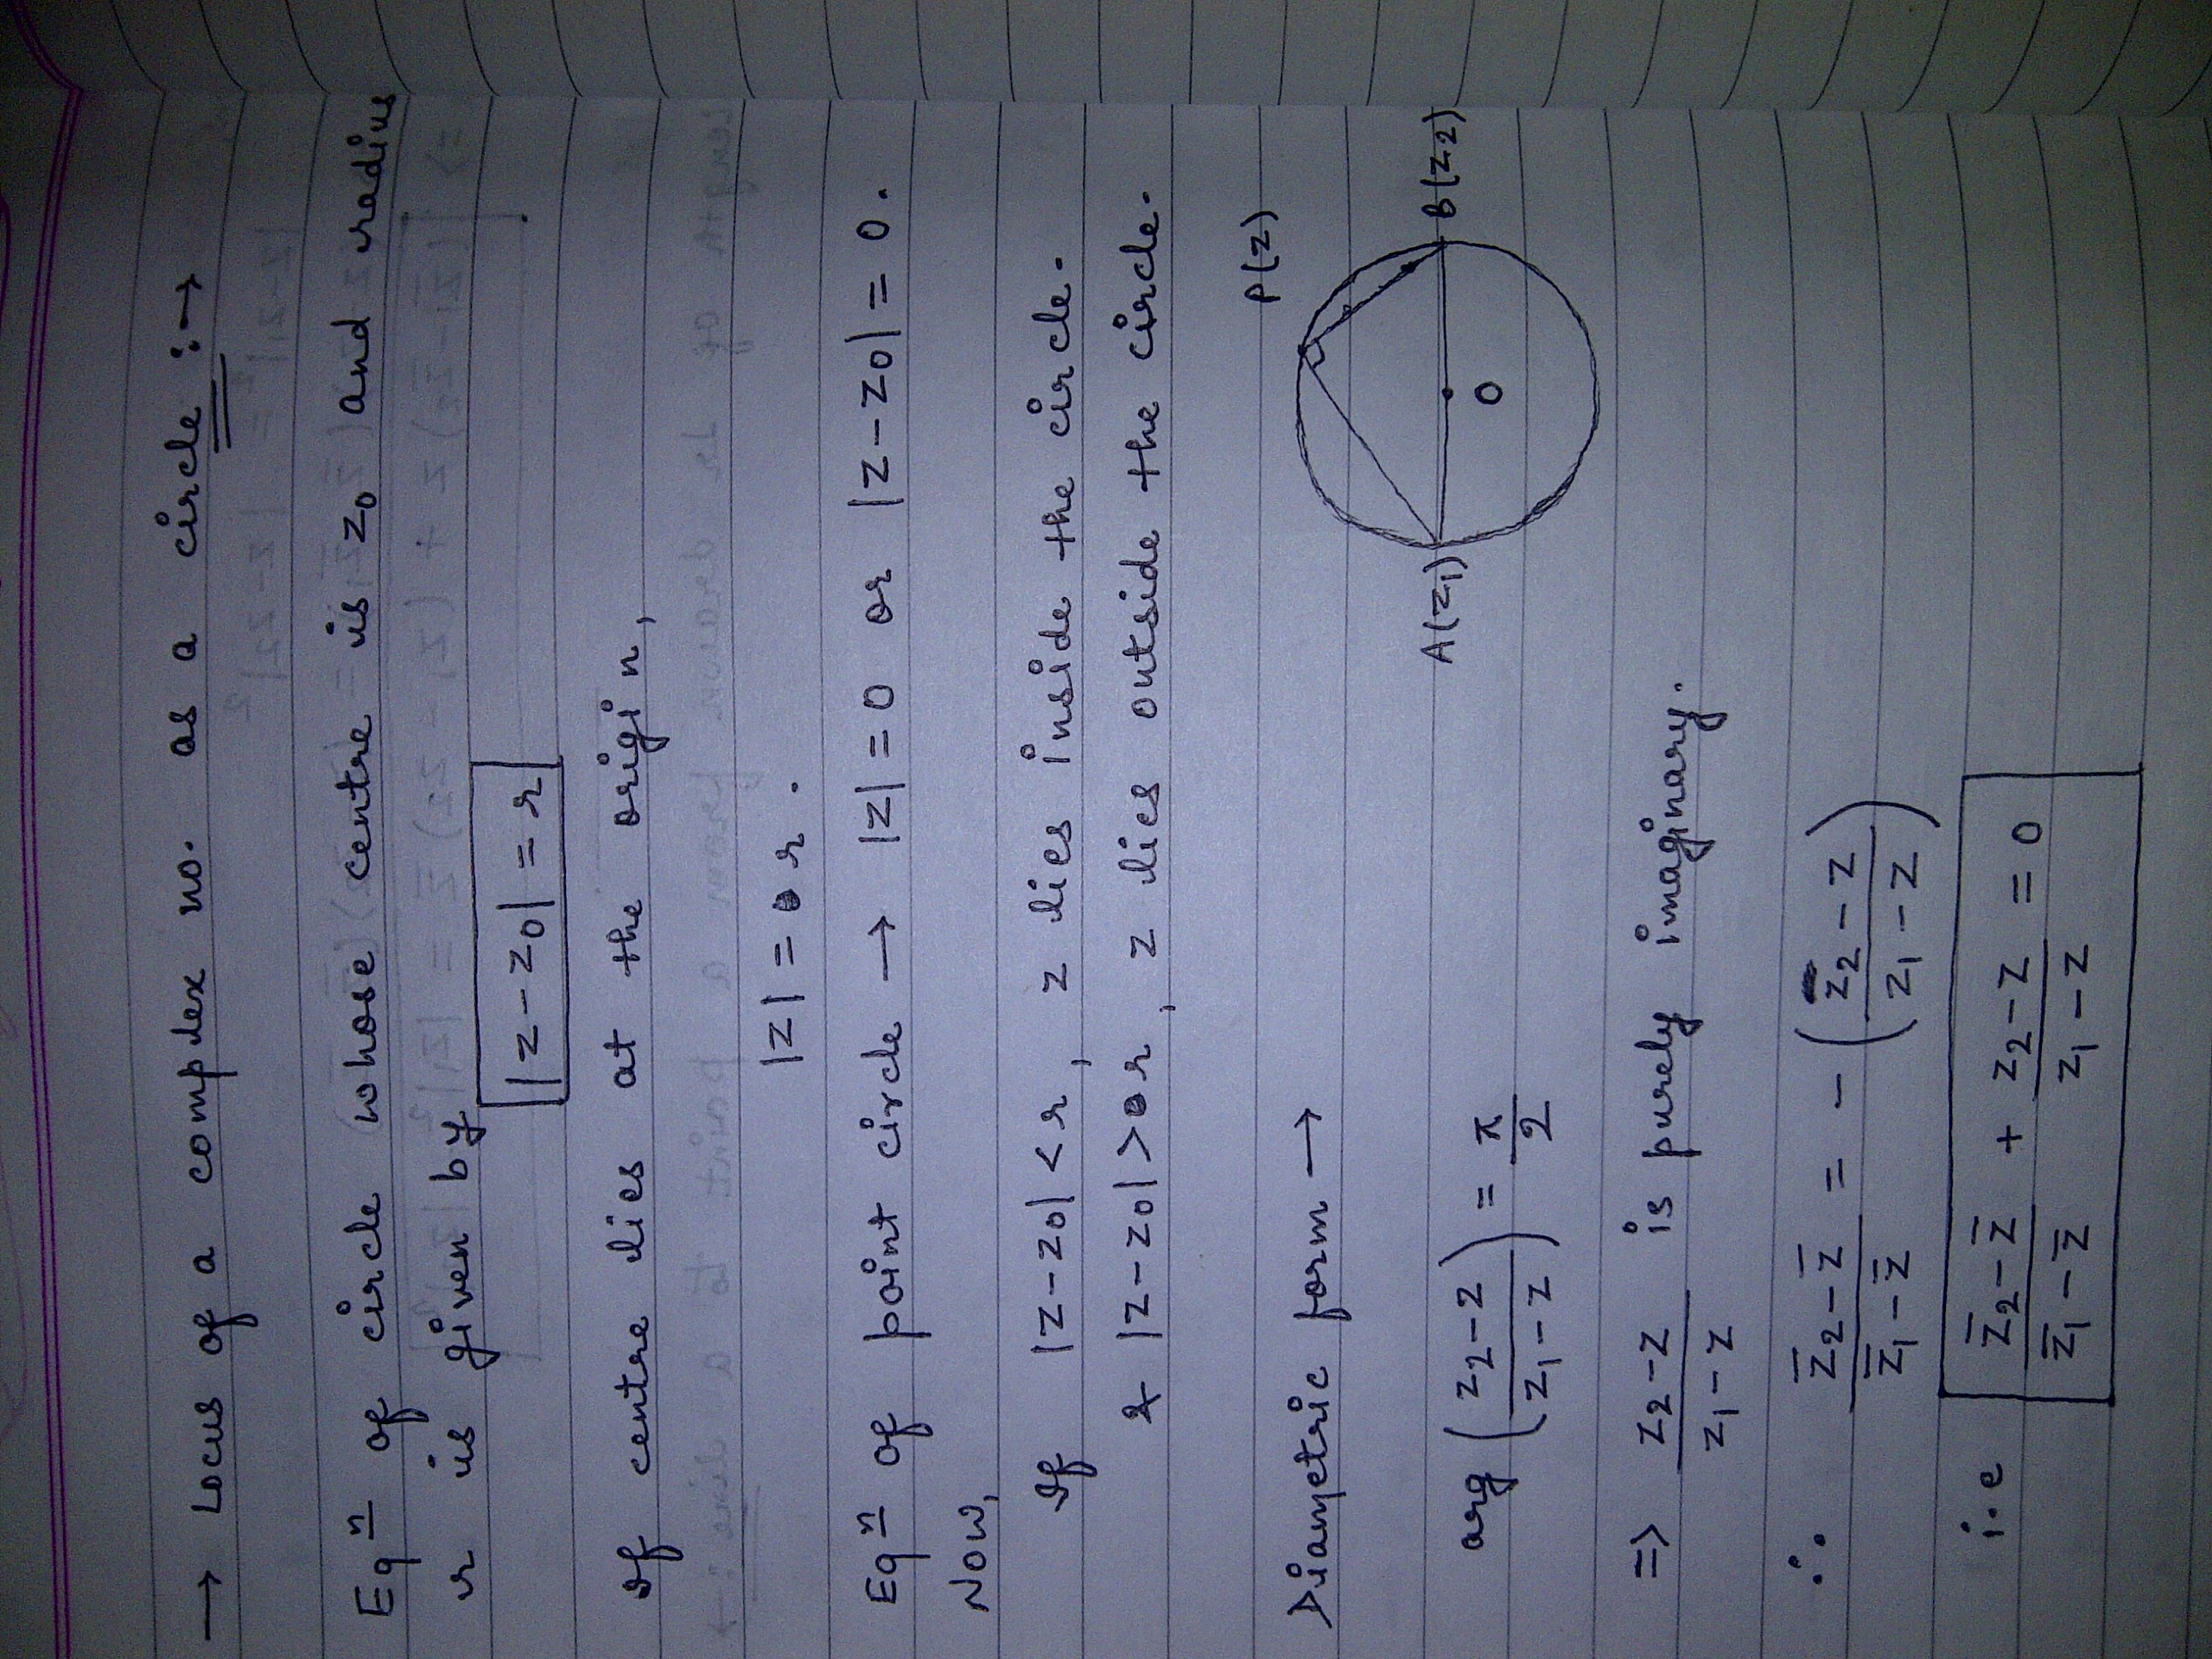 → Locus of a complex no. as a circle :→
Eqⁿ of circle whose centre is z₀ and radius
r is given by
|z-z₀| = r
If centre lies at the origin,
|z| = r.
Eqⁿ of point circle → |z| = 0 or |z-z₀| = 0.
Now,
If |z-z₀| < r, z lies inside the circle.
& |z-z₀| > r, z lies outside the circle.
P(z)
Diametric form →
A(z₁) B(z₂)
O
arg ( (z₂-z)/(z₁-z) ) = π/2
=> (z₂-z)/(z₁-z) is purely imaginary.
∴ (z̄₂-z̄)/(z̄₁-z̄) = - ( (z₂-z)/(z₁-z) )
i.e (z̄₂-z̄)/(z̄₁-z̄) + (z₂-z)/(z₁-z) = 0